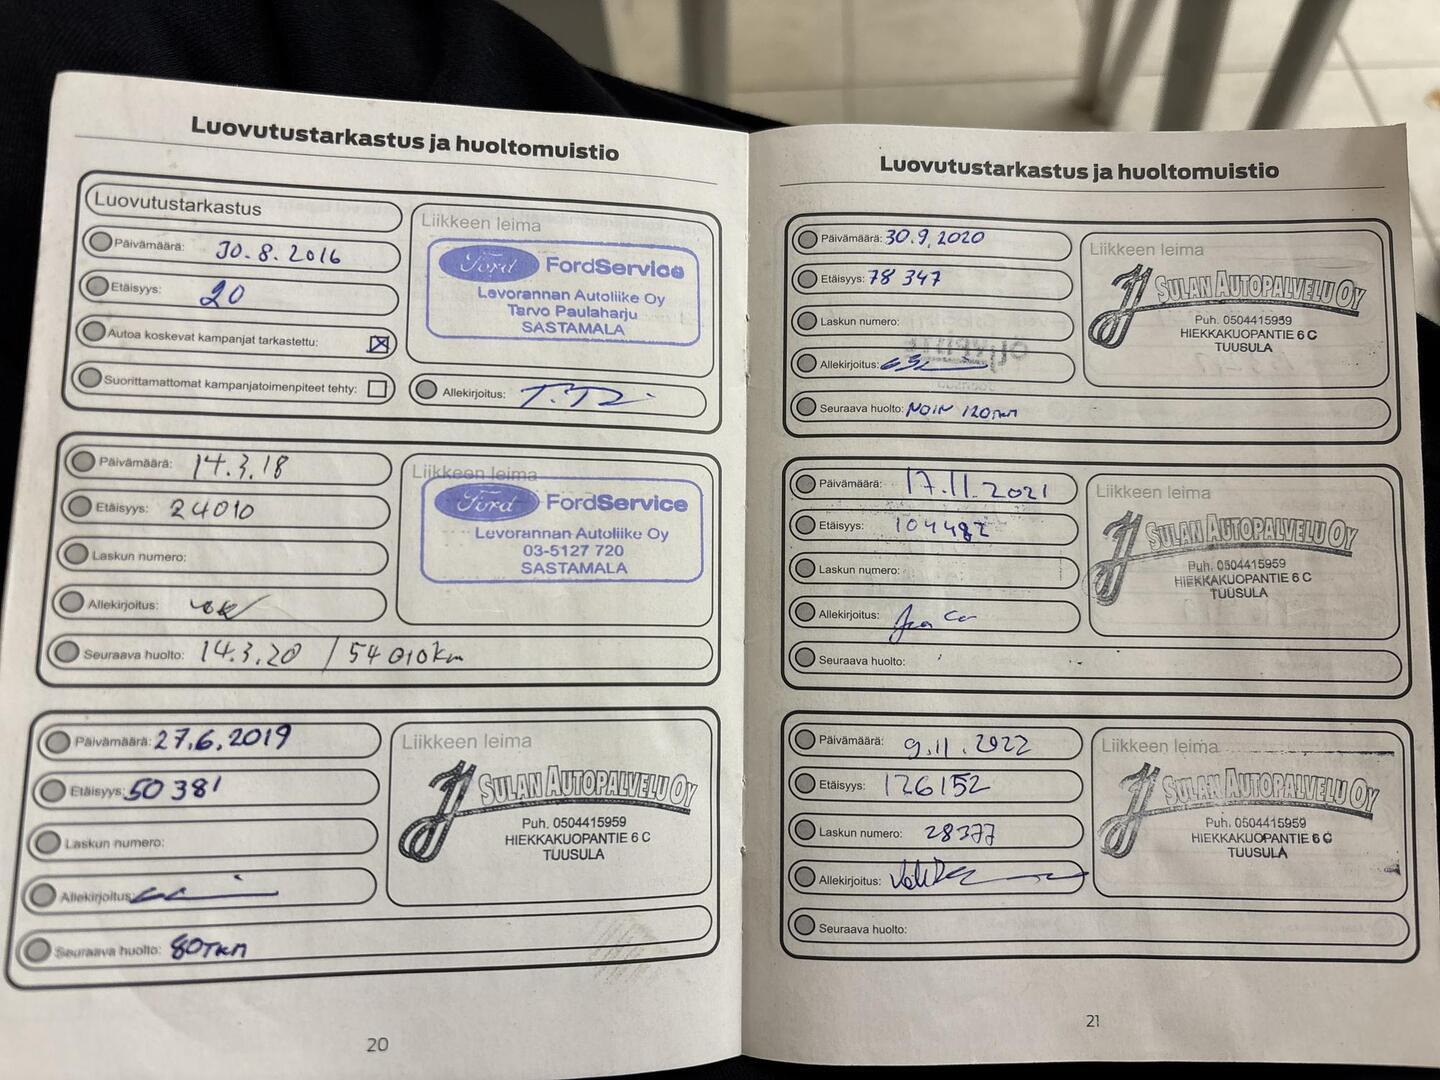 Luovutustarkastus ja huoltomuistio
Luovutustarkastus
Päivämäärä: 30.8.2016
Etäisyys: 20
Autoa koskevat kampanjat tarkastettu:
Suorittamattomat kampanjatoimenpiteet tehty:
Liikkeen leima
Ford FordService
Levorannan Autoliike Oy
Tarvo Paulaharju
SASTAMALA
Allekirjoitus:
Päivämäärä: 14.3.18
Etäisyys: 24010
Laskun numero:
Allekirjoitus:
Seuraava huolto: 14.3.20 / 54 010 km
Liikkeen leima
Ford FordService
Levorannan Autoliike Oy
03-5127 720
SASTAMALA
Päivämäärä: 27.6.2019
Etäisyys: 50 381
Laskun numero:
Allekirjoitus:
Seuraava huolto: 80TKM
Liikkeen leima
SULAN AUTOPALVELU OY
Puh. 0504415959
HIEKKAKUOPANTIE 6 C
TUUSULA
20
Luovutustarkastus ja huoltomuistio
Päivämäärä: 30.9.2020
Etäisyys: 78 347
Laskun numero:
Allekirjoitus:
Seuraava huolto: NOIN 120TKM
Liikkeen leima
SULAN AUTOPALVELU OY
Puh. 0504415959
HIEKKAKUOPANTIE 6 C
TUUSULA
Päivämäärä: 17.11.2021
Etäisyys: 104482
Laskun numero:
Allekirjoitus:
Seuraava huolto:
Liikkeen leima
SULAN AUTOPALVELU OY
Puh. 0504415959
HIEKKAKUOPANTIE 6 C
TUUSULA
Päivämäärä: 9.11.2022
Etäisyys: 126152
Laskun numero: 28377
Allekirjoitus:
Seuraava huolto:
Liikkeen leima
SULAN AUTOPALVELU OY
Puh. 0504415959
HIEKKAKUOPANTIE 6 C
TUUSULA
21